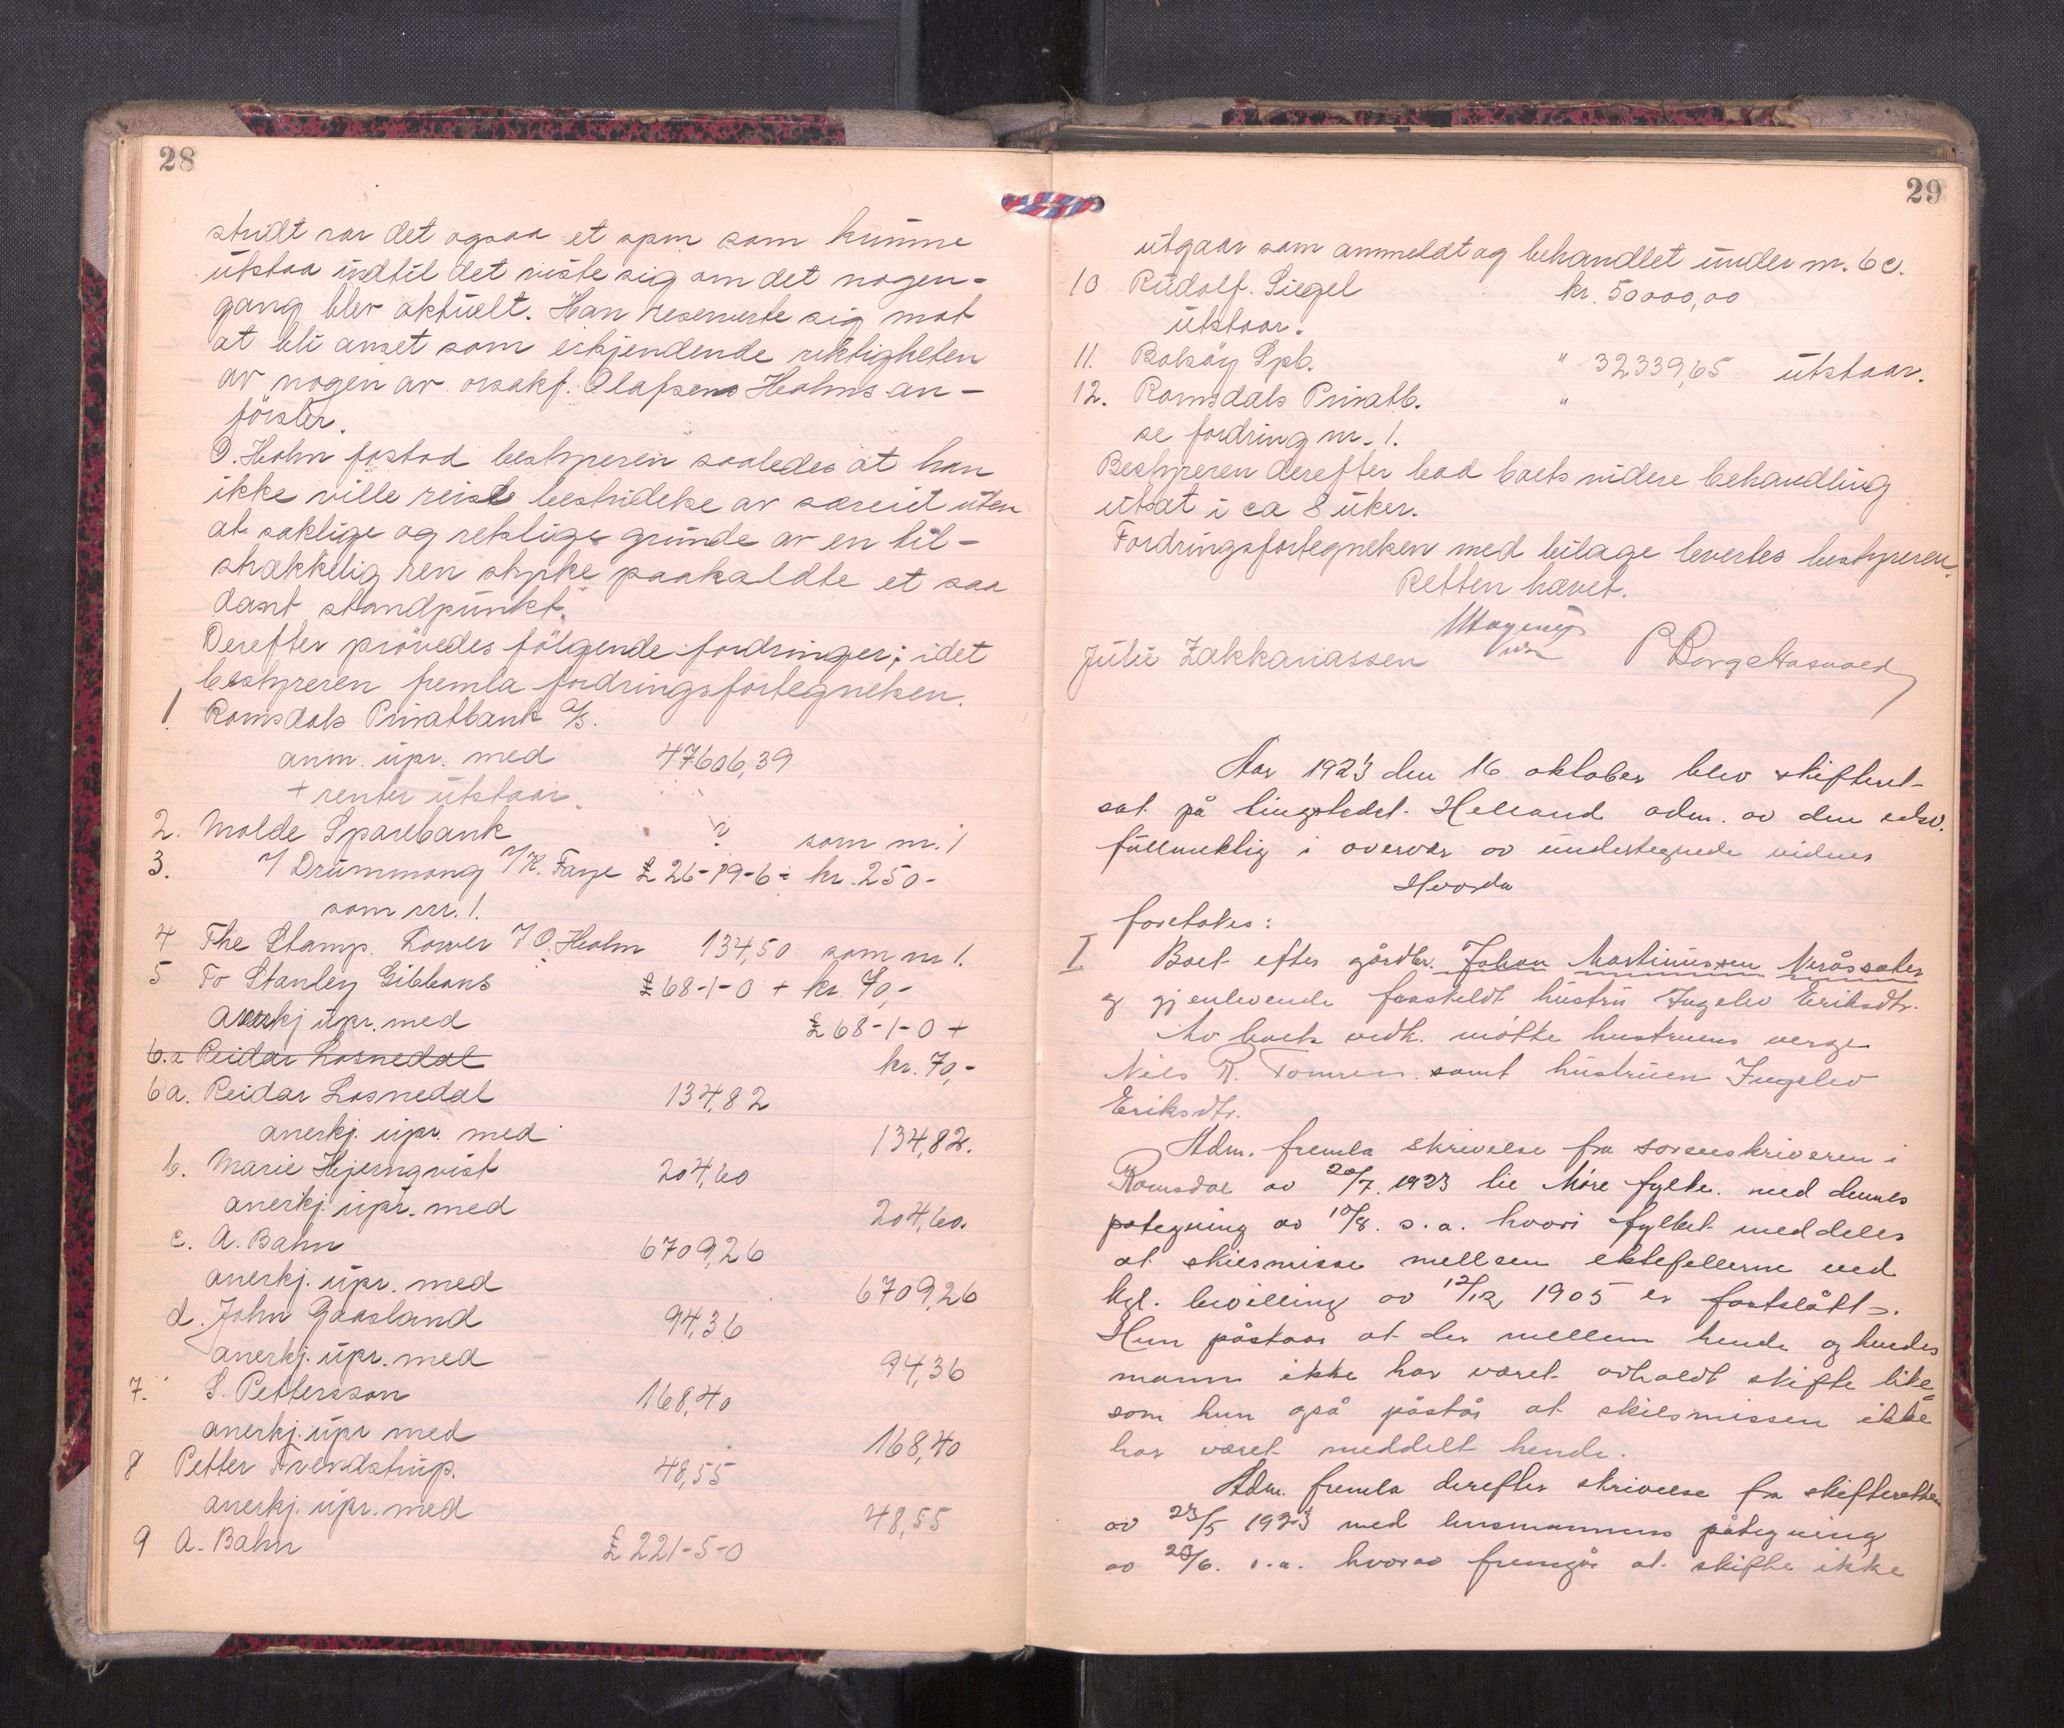 28
stridt var det ogsaa et spm som kunne
utstaa indtil det viste sig om det nogen-
gang blev aktuelt. Han reserverte sig mot
at bli anset som erkjendende riktigheten
av nogen av orsakf. Olafsens Holms an-
førsler.
O. Holm forstod bestyreren saaledes at han
ikke ville reise bestridelse av særeiet uten
at saklige og retslige grunde av en til-
strækkelig ren styrke paakaldte et saa
dant standpunkt.
Derefter prövedes fölgende fordringer; idet
bestyreren fremla fordringsfortegnelsen.
1 Romsdals Privatbank a/s.
anm. upr. med 47606,39
+ renter utstaar.
2. Molde Sparebank ? som nr. 1
3. Drummong K. Farye £ 26-19-6 = kr. 250-
som nr. 1.
4 The Stamp. Lower O. Holm 134,50 som nr 1.
5 To Stanley Gibbons £ 68-1-0 + kr. 70,-
Anerkj upr. med £ 68-1-0 +
6.a Reidar Losnedal kr. 70,-
6a. Reidar Losnedal 134,82
anerkj. upr. med 134,82.
b. Marie Hjernqvist 204,60
anerkj upr. med 204,60.
c. A. Bahn 6709,26
anerkj. upr. med 6709,26
d. John Gaasland 94,36
anerkj. upr. med 94,36
7. S. Pettersson 168,40
anerkj. upr med 168,40
8 Petter 48,55
anerkj. upr. med 48,55
9 A. Bahn £ 221-5-0
29
utgaar som anmeldt og behandlet under nr. 6 c.
10 Rudolf. Siegel kr. 50000,00
utstaar.
11. Bolsöy Spb. " 32339,65 utstaar.
12. Romsdals Privatb. "
se fordring nr. 1.
Bestyreren derefter bad boets videre behandling
utsat i ca 8 uker.
Fordringsfortegnelsen med bilage levertes bestyreren.
Retten hævet.
Julie Zakkariassen
Aar 1923 den 16 oktober blev skifteret
sat på tingstedet Helland adm. av den edsv.
fullmektig i overvær av undertegnede vidner
Hvorda
foretokes:
I Boet efter gårdbr. Johan Martinussen Meråssæter
og gjenlevende fraskildt hustru Ingelev Eriksdtr.
Av boets vedk. møtte hustruens verge
Nils R. Tomren samt hustruen Ingelev
Eriksdtr.
Adm. fremla skrivelse fra sorenskriveren i
Romsdal av 20/7. 1923 til Møre fylke. med dennes
påtegning av 10/8. s. a. hvori fylket meddeler
at skilsmisse mellem ektefellerne ved
kgl. bevilling av 12/12 1905 er fastslått.
Hun påstaar at der mellem hende og hendes
mann ikke har været avholdt skifte like-
som hun også påstår at skilsmissen ikke
har været meddelt hende.
Adm. fremla derefter skrivelse fra skifteretten
av 23/5 1923 med lensmannens påtegning
av 26/6. s. a. hvorav fremgår at skifte ikke